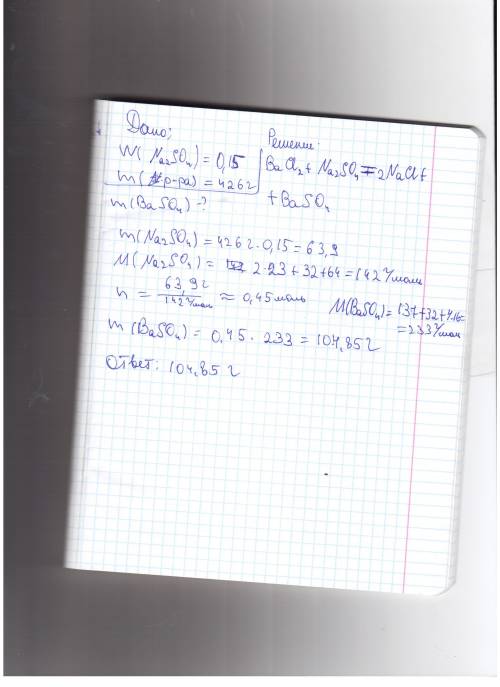 Дано;
W(Na₂SO₄) = 0,15
m(р-ра) = 426 г
m(BaSO₄) - ?
Решение:
BaCl₂ + Na₂SO₄ = 2NaCl +
+ BaSO₄
m(Na₂SO₄) = 426 г · 0,15 = 63,9
M(Na₂SO₄) = 2·23 + 32 + 64 = 142 г/моль
n = 63,9 г / 142 г/моль ≈ 0,45 моль
M(BaSO₄) = 137 + 32 + 4·16 =
= 233 г/моль
m(BaSO₄) = 0,45 · 233 = 104,85 г
Ответ: 104,85 г